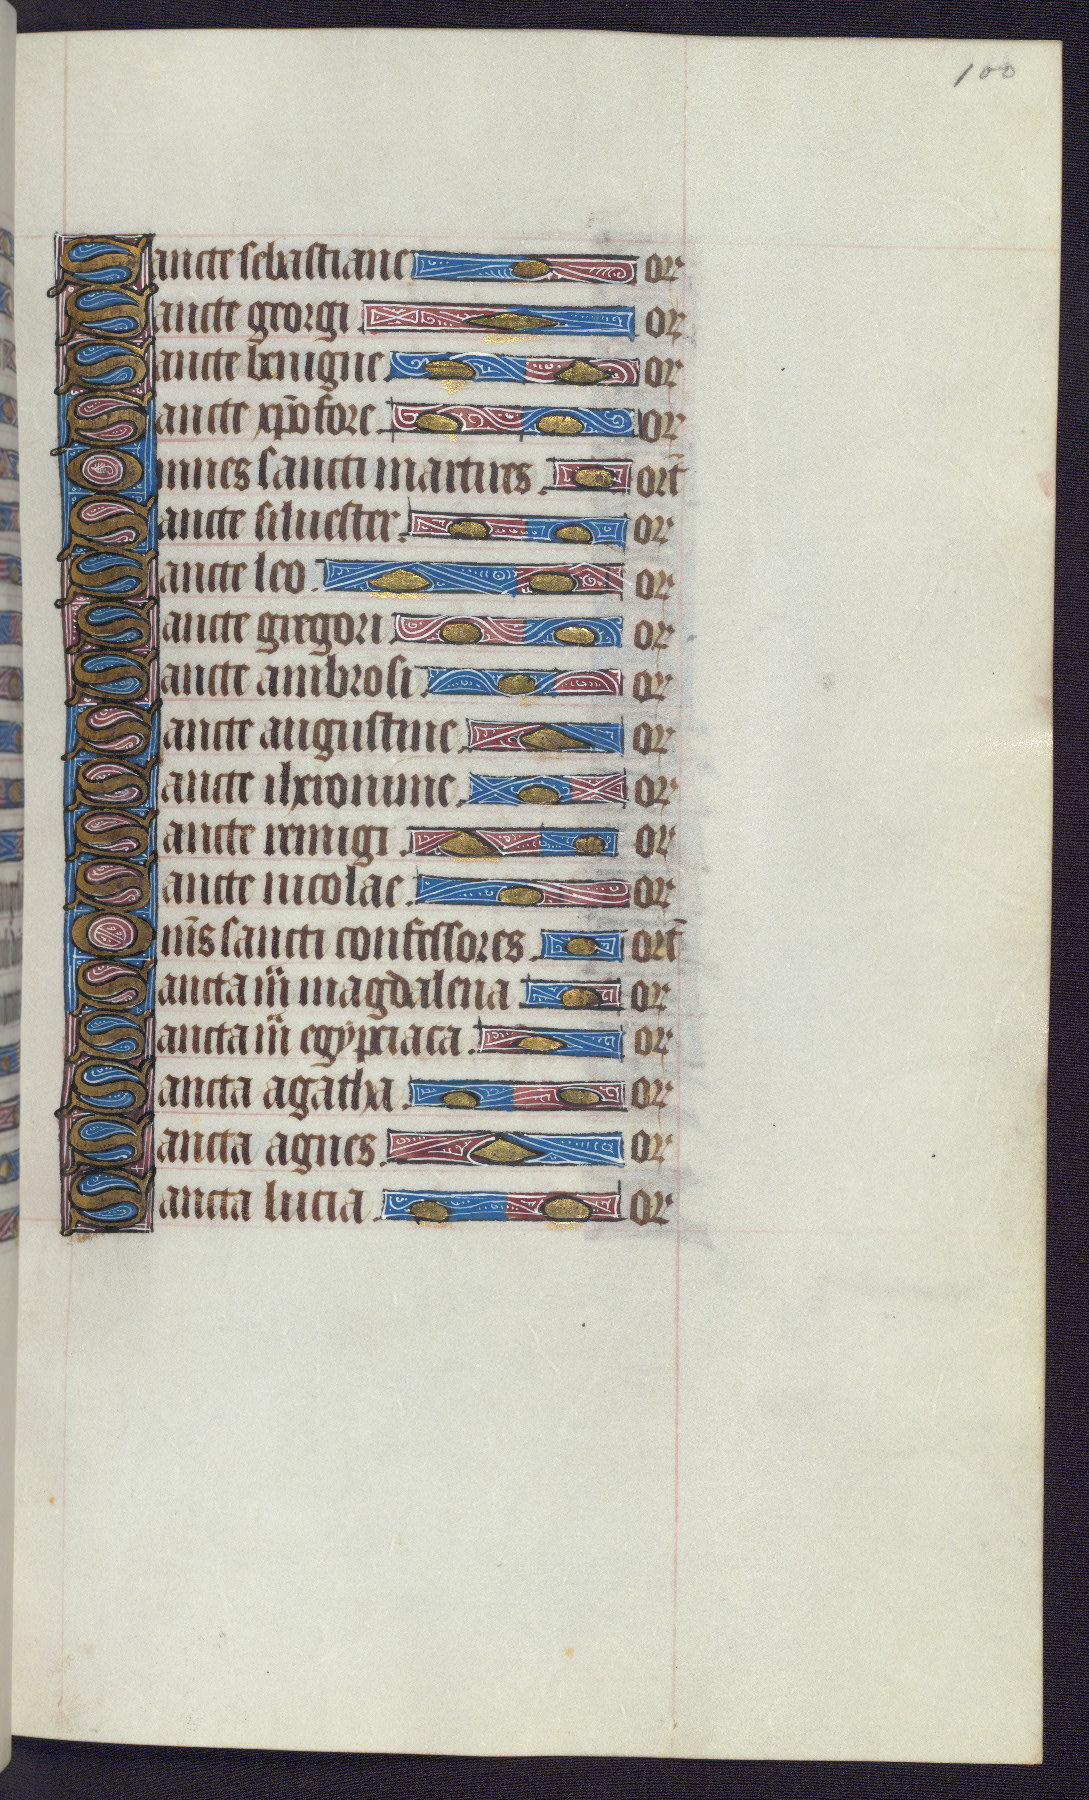 100
Sancte sebastiane or
Sancte georgi or
Sancte benigne or
Sancte xp̄ofore. or
Omnes sancti martires. or̄t
Sancte siluester. or
Sancte leo. or
Sancte gregori or
Sancte ambrosi. or
Sancte augustine. or
Sancte iheronime. or
Sancte remigi. or
Sancte nicolae. or
Om̄s sancti confessores. or̄t
Sancta m̄ magdalena. or
Sancta m̄ egypciaca. or
Sancta agatha. or
Sancta agnes. or
Sancta lucia. or